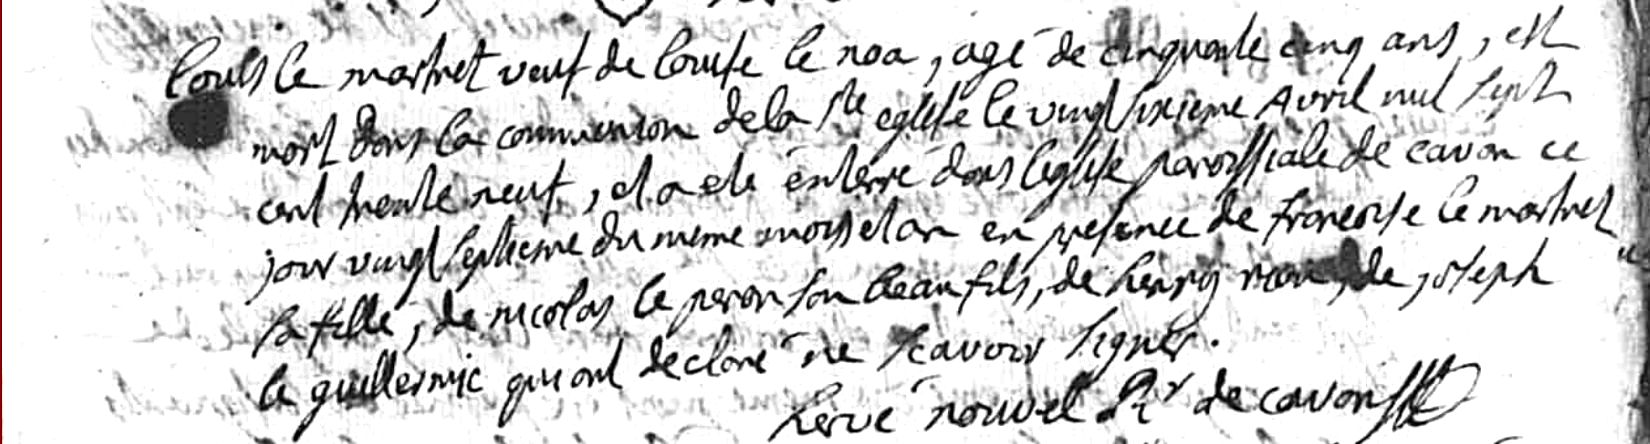 Louis le martret veuf de Louise le noa, agé de cinquante cinq ans, est
mort dans la communion de la Ste eglise le vingt sixieme Avril mil sept
cent trente neuf, et a eté enterré dans l'eglise paroissiale de cavan ce
jour vingt septieme du meme mois et an en presence de francoise le martret
sa fille, de nicolas le peron son beau fils, de henry rion, de joseph
le guillermic qui ont declaré ne scavoir signer.
hervé nouvel Rr de cavan